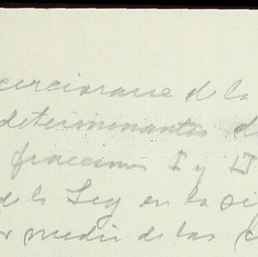 cerciorarse de la
determinantes d
fracciones I y II
de la Ley en la si
r medio de las c